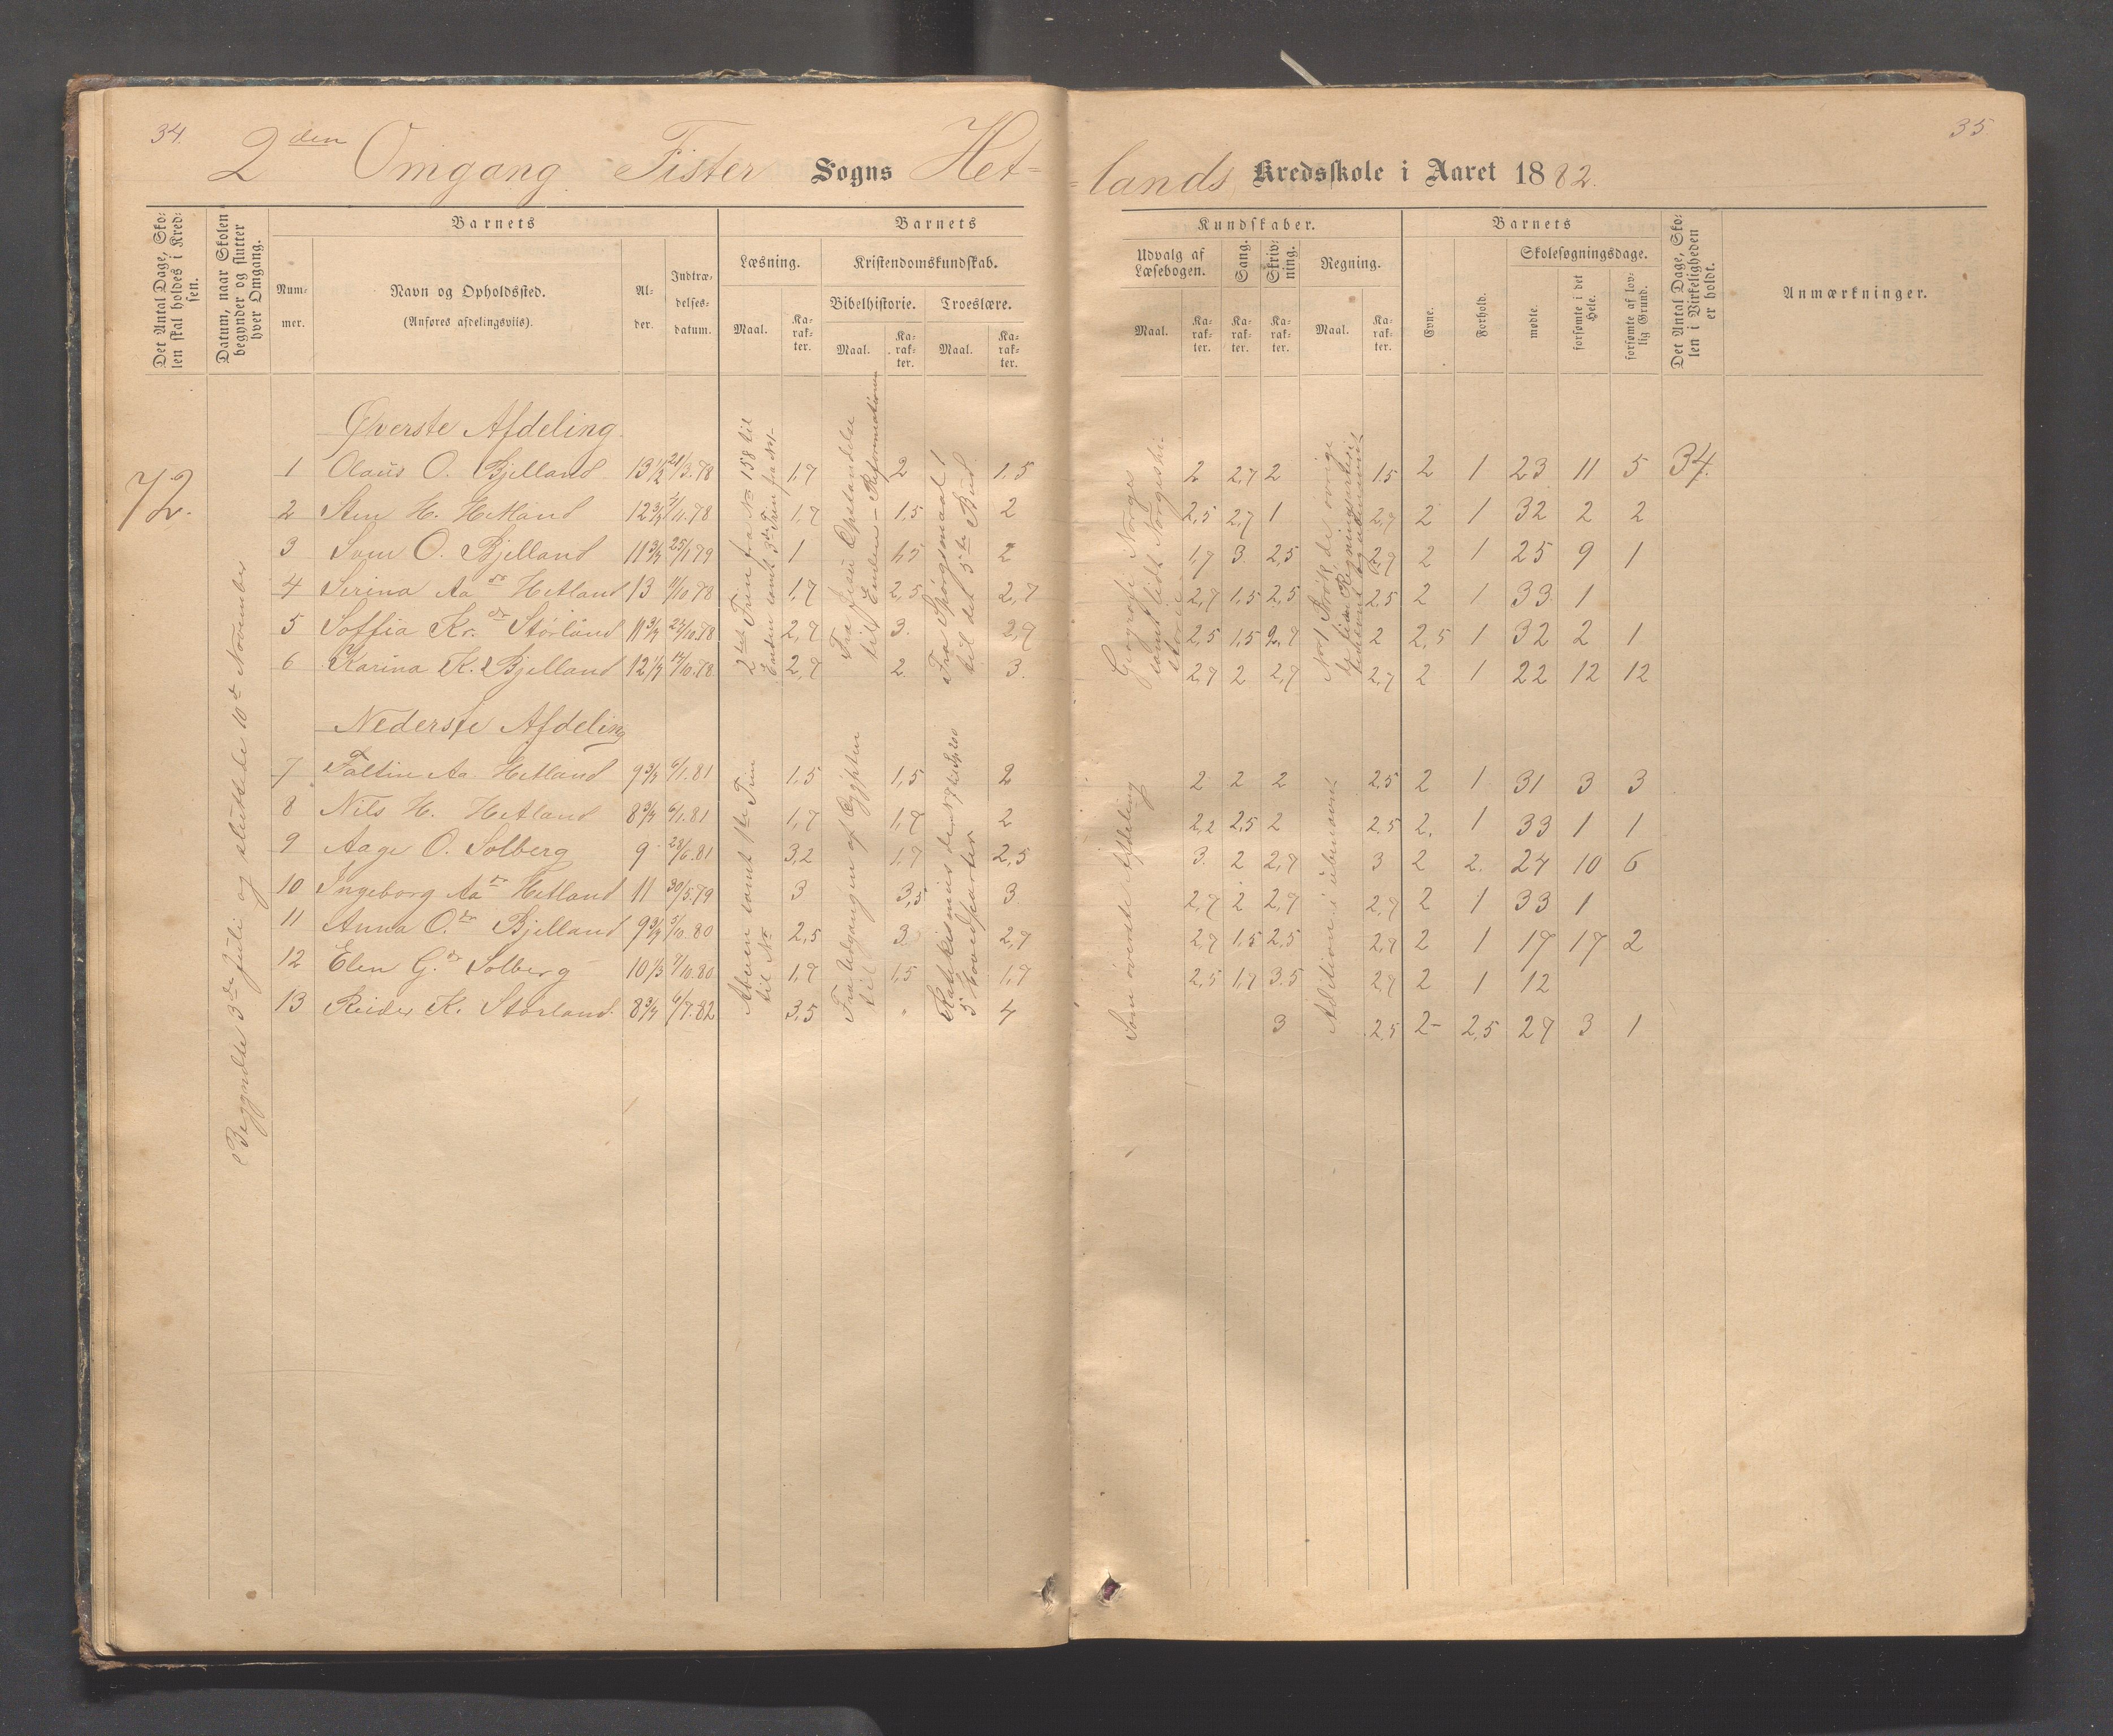 34.
35.
2den Omgang. Fister Sogns Het-
-lands Kredsskole i Aaret 1882.
Det Antal Dage, Sko-
len skal holdes i Kred-
sen.
Datum, naar Skolen
begynder og slutter
hver Omgang.
Barnets
Num-
mer.
Navn og Opholdssted.
(Anføres afdelingsviis).
Al-
der.
Indtræ-
delses-
datum.
Barnets
Læsning.
Kristendomskundskab.
Bibelhistorie.
Troeslære.
Maal.
Ka-
rak-
ter.
Maal.
Ka-
rak-
ter.
Maal.
Ka-
rak-
ter.
Kundskaber.
Udvalg af
Læsebogen.
Sang.
Skriv-
ning.
Regning.
Maal.
Ka-
rak-
ter.
Ka-
rak-
ter.
Ka-
rak-
ter.
Maal.
Ka-
rak-
ter.
Barnets
Evne.
Forhold.
Skolesøgningsdage.
mødte.
forsømte i det
Hele.
forsømte af lov-
lig Grund.
Det Antal Dage, Sko-
len i Virkeligheden
er holdt.
Anmærkninger.
72.
Begyndte 3de Juli og sluttede 10de November
Øverste Afdeling.
1 Olaus O. Bjelland 13½ 21/3.78 1,7 2 1,5 2 2,7 2 1,5 2 1 23 11 5 34.
2 Sten H. Hetland 12¾ 1,7 1,5 2 2,5 2,7 1 2,7 2 1 32 2 2
3 O. Bjelland 11¾ 25/1 79 1 2 1,7 3 2,5 2,7 2 1 25 9 1
4 Serina Aa.dr Hetland 13 1/10.78 1,7 2,5 2,7 2,7 1,5 2,5 2,5 2 1 33 1
5 Soffia Kr.dr Störland 11¾ 2,7 3. 2,7 2,5 1,5 2,7 2 2,5 1 32 2 1
6 Karina K. Bjelland 2,7 2 3. 2,7 2 2,7 2,7 2 1 22 12 12
2det Trin fra No 158 til
Enden samt 3die Trin fra No 1-
Fra Jesu Opstandelse
til Enden - Reformationen
Fra Spörgsmaal 1
til det 5te Bud
Geografi Norges
samt lidt Norgeshi-
storie
Brök, de övrige
Nederste Afdeling
7 Faltin Aa. Hetland 9¾ 6/1.81 1,5 1,5 2 2 2 2 2,5 2 1 31 3 3
8 Nils H. Hetland 8¾ 6/1.81 1,7 1,7 2 2,2 2,5 2 2,5 2. 1 33 1 1
9 Aage O. Solberg 9 28/6.81 3,2 1,7 2,5 3. 2 2,7 3 2 2. 24 10 6
10 Ingeborg Aa.dr Hetland 11 30/5.79 3 3,5 3 2,7 2 2,7 2,7 2 1 33 1
11 Anna O.dr Bjelland 9¾ 5/10.80 2,5 3. 2,7 2,7 1,5 2,5 2,7 2 1 17 17 2
12 Elen G.dr Solberg 1,7 1,5 1,7 2,5 1,7 3.5 2,7 2 1 12
13 Reider K. Störland. 8¾ 6/7.82 3,5 4 3 2,5 2- 2,5 27 3 1
Abcen samt 1ste Trin
til No
Fra Udgangen af Egypten
til
5 Hovedparter
Som överste Afdeling
Addition i ubenævnt